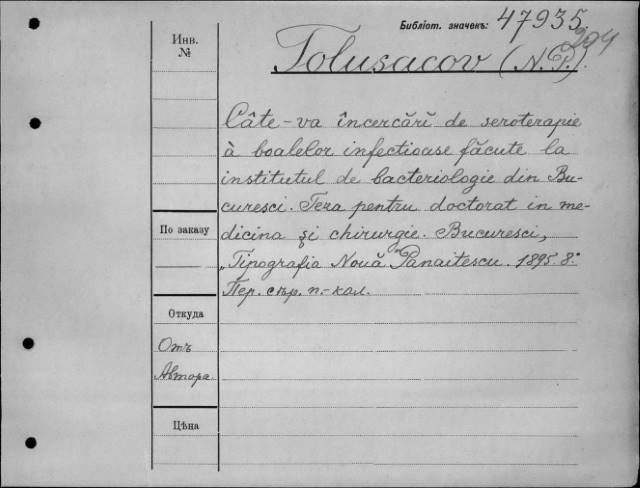 Библіот. значекъ: 47935.
294
Инв. №
Tolusacov (N. P.).
Câte-va încercărĭ de seroterapie
à boalelor infectioase făcute la
institutul de bacteriologie din Bu-
curesci. Teza pentru doctorat in me-
dicina și chirurgie. Bucuresci,
„Tipografia Nouă Panaitescu. 1895. 8°
Пер. стр. п.-кол.
По заказу
Откуда
Отъ
Автора
Цѣна